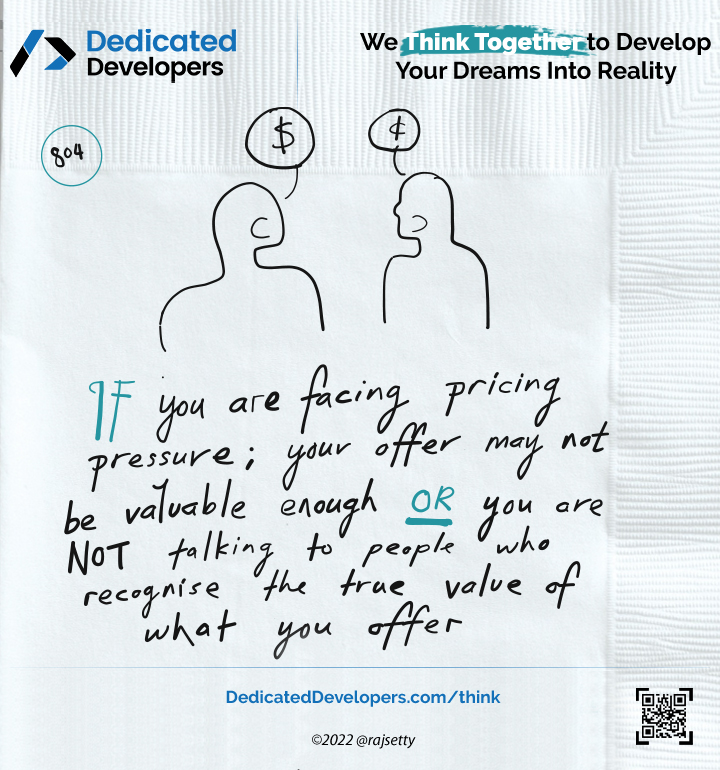 Dedicated
Developers
We Think Together to Develop
Your Dreams Into Reality
804
$
¢
IF you are facing pricing
pressure; your offer may not
be valuable enough OR you are
NOT talking to people who
recognise the true value of
what you offer
DedicatedDevelopers.com/think
©2022 @rajsetty